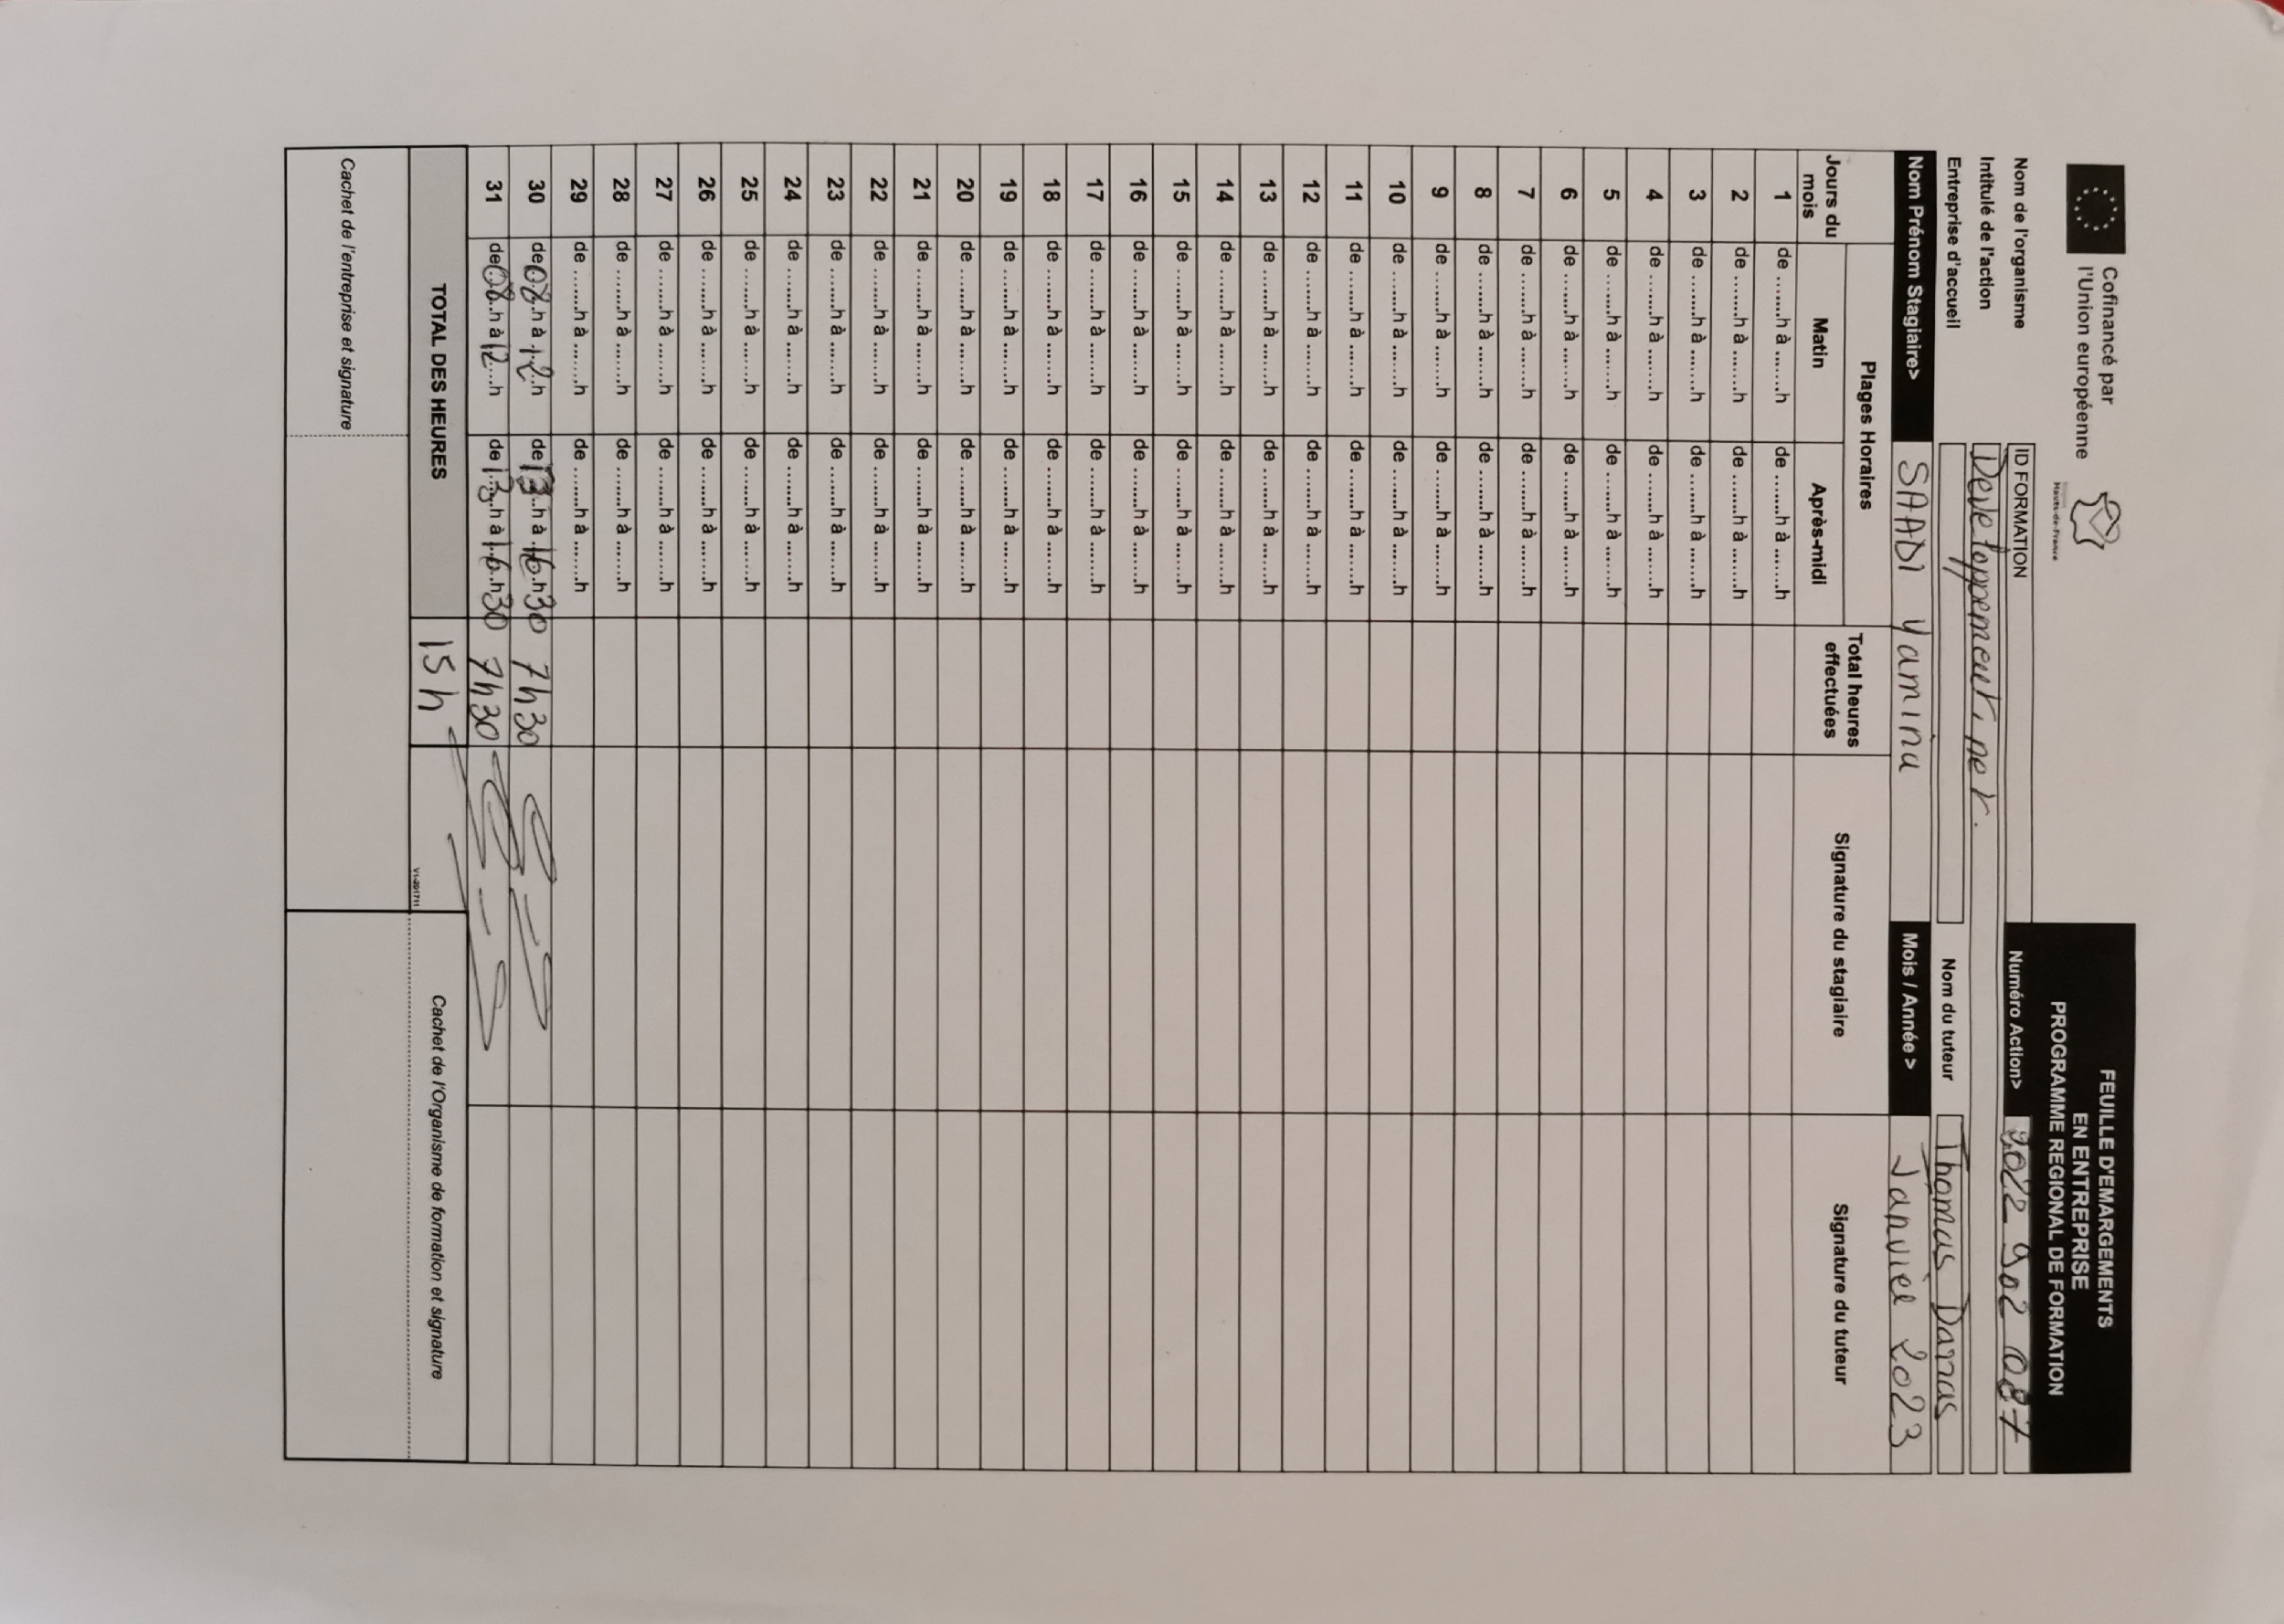 Cofinancé par
l'Union européenne
Hauts-de-France
FEUILLE D'EMARGEMENTS
EN ENTREPRISE
PROGRAMME REGIONAL DE FORMATION
Nom de l'organisme ID FORMATION Numéro Action> 2022 902 087
Intitulé de l'action Developpement .net.
Entreprise d'accueil Nom du tuteur Thomas Darras
Nom Prénom Stagiaire> SAADI Yamina Mois / Année > Janvier 2023
Jours du mois Plages Horaires Total heures effectuées Signature du stagiaire Signature du tuteur
Matin Après-midi
1 de .......h à .......h de .......h à .......h
2 de .......h à .......h de .......h à .......h
3 de .......h à .......h de .......h à .......h
4 de .......h à .......h de .......h à .......h
5 de .......h à .......h de .......h à .......h
6 de .......h à .......h de .......h à .......h
7 de .......h à .......h de .......h à .......h
8 de .......h à .......h de .......h à .......h
9 de .......h à .......h de .......h à .......h
10 de .......h à .......h de .......h à .......h
11 de .......h à .......h de .......h à .......h
12 de .......h à .......h de .......h à .......h
13 de .......h à .......h de .......h à .......h
14 de .......h à .......h de .......h à .......h
15 de .......h à .......h de .......h à .......h
16 de .......h à .......h de .......h à .......h
17 de .......h à .......h de .......h à .......h
18 de .......h à .......h de .......h à .......h
19 de .......h à .......h de .......h à .......h
20 de .......h à .......h de .......h à .......h
21 de .......h à .......h de .......h à .......h
22 de .......h à .......h de .......h à .......h
23 de .......h à .......h de .......h à .......h
24 de .......h à .......h de .......h à .......h
25 de .......h à .......h de .......h à .......h
26 de .......h à .......h de .......h à .......h
27 de .......h à .......h de .......h à .......h
28 de .......h à .......h de .......h à .......h
29 de .......h à .......h de .......h à .......h
30 de 08 h à 12 h de 13 h à 16 h30 7h30
31 de 08 h à 12 h de 13 h à 16 h30 7h30
TOTAL DES HEURES 15h V1-201711 Cachet de l'Organisme de formation et signature
Cachet de l'entreprise et signature